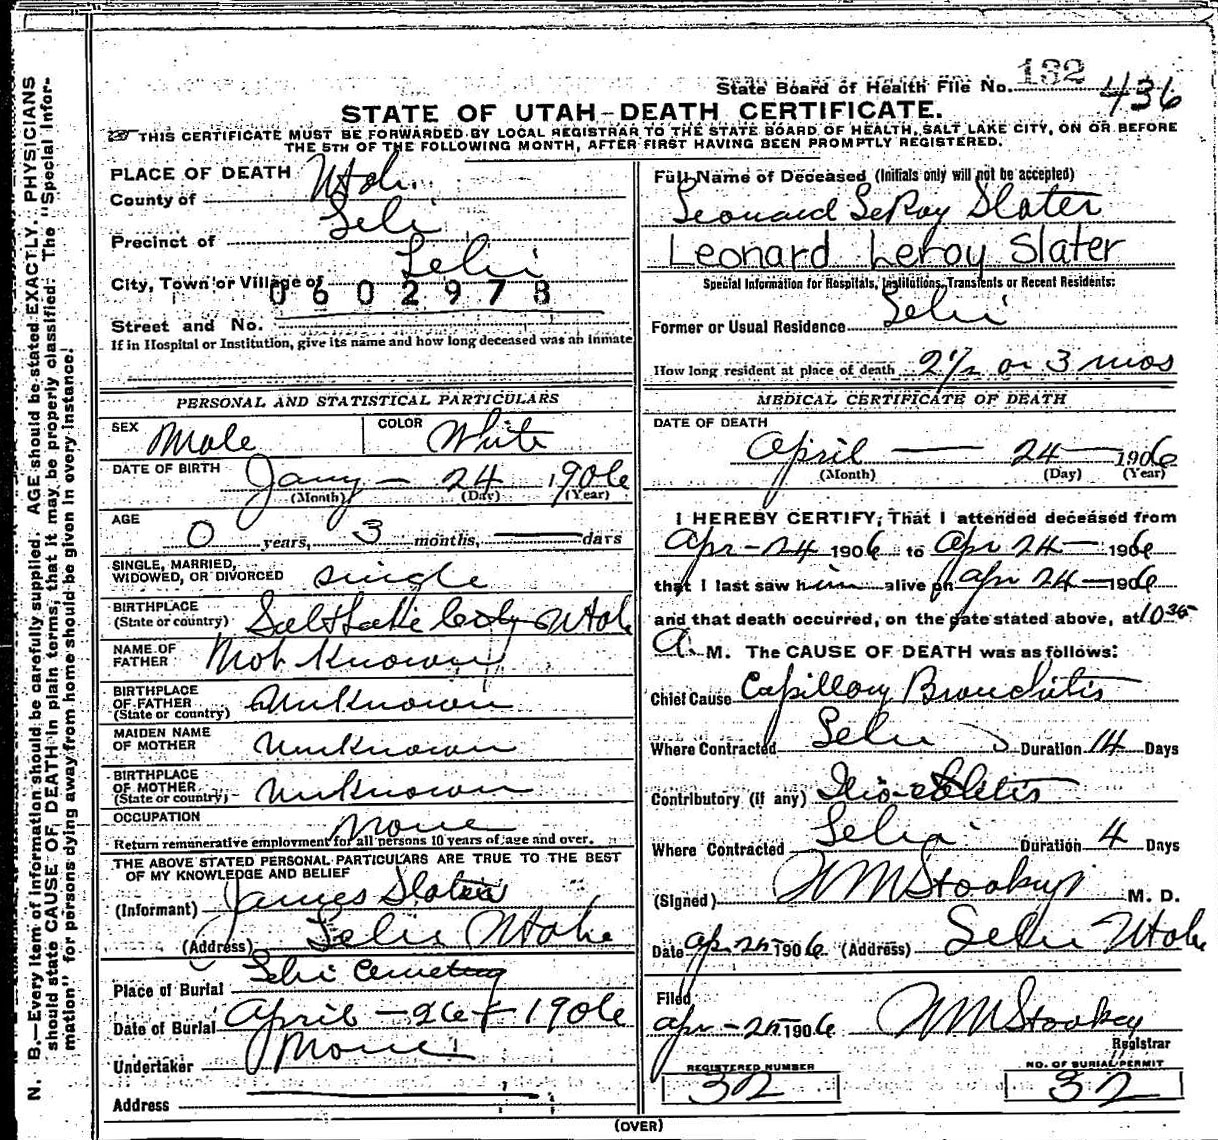 State Board of Health File No. 132 436
STATE OF UTAH-DEATH CERTIFICATE.
THIS CERTIFICATE MUST BE FORWARDED BY LOCAL REGISTRAR TO THE STATE BOARD OF HEALTH, SALT LAKE CITY, ON OR BEFORE
THE 5TH OF THE FOLLOWING MONTH, AFTER FIRST HAVING BEEN PROMPTLY REGISTERED.
PLACE OF DEATH
County of Utah
Precinct of Lehi
City, Town or Village of Lehi
0602978
Street and No.
If in Hospital or Institution, give its name and how long deceased was an inmate
PERSONAL AND STATISTICAL PARTICULARS
SEX Male COLOR White
DATE OF BIRTH Jany - 24 1906
(Month) (Day) (Year)
AGE
0 years, 3 months, — days
SINGLE, MARRIED,
WIDOWED, OR DIVORCED single
BIRTHPLACE
(State or country) Salt Lake City Utah
NAME OF
FATHER Not Known
BIRTHPLACE
OF FATHER
(State or country) Unknown
MAIDEN NAME
OF MOTHER Unknown
BIRTHPLACE
OF MOTHER
(State or country) Unknown
OCCUPATION None
Return remunerative employment for all persons 10 years of age and over.
THE ABOVE STATED PERSONAL PARTICULARS ARE TRUE TO THE BEST
OF MY KNOWLEDGE AND BELIEF
(Informant) James Slater
(Address) Lehi Utah
Place of Burial Lehi Cemetery
Date of Burial April - 26 - 1906
Undertaker None
Address
Full Name of Deceased (Initials only will not be accepted)
Leonard LeRoy Slater
Leonard Leroy Slater
Special Information for Hospitals, Institutions, Transients or Recent Residents:
Former or Usual Residence Lehi
How long resident at place of death 2 1/2 or 3 mos
MEDICAL CERTIFICATE OF DEATH
DATE OF DEATH
April — 24 — 1906
(Month) (Day) (Year)
I HEREBY CERTIFY, That I attended deceased from
Apr - 24 1906 to Apr 24 - 1906
that I last saw him alive on Apr 24 - 1906
and that death occurred, on the date stated above, at 10 35
A. M. The CAUSE OF DEATH was as follows:
Chief Cause Capillary Bronchitis
Where Contracted Lehi Duration 14 Days
Contributory (if any) Ilio-colitis
Where Contracted Lehi Duration 4 Days
(Signed) WM Stookey M. D.
Date Apr 1906 (Address) Lehi Utah
Filed
Apr 1906 WM Stookey
Registrar
REGISTERED NUMBER
32
NO. OF BURIAL PERMIT
32
(OVER)
N. B.—Every item of information should be carefully supplied. AGE should be stated EXACTLY. PHYSICIANS
should state CAUSE OF DEATH in plain terms, that it may be properly classified. The "Special Infor-
mation" for persons dying away from home should be given in every instance.